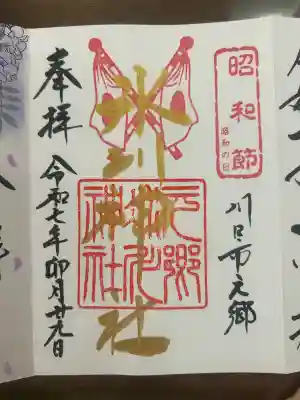 昭和節
昭和の日
川口市元郷
氷川神社
元郷氷川神社
奉拝
令和七年卯月廿九日